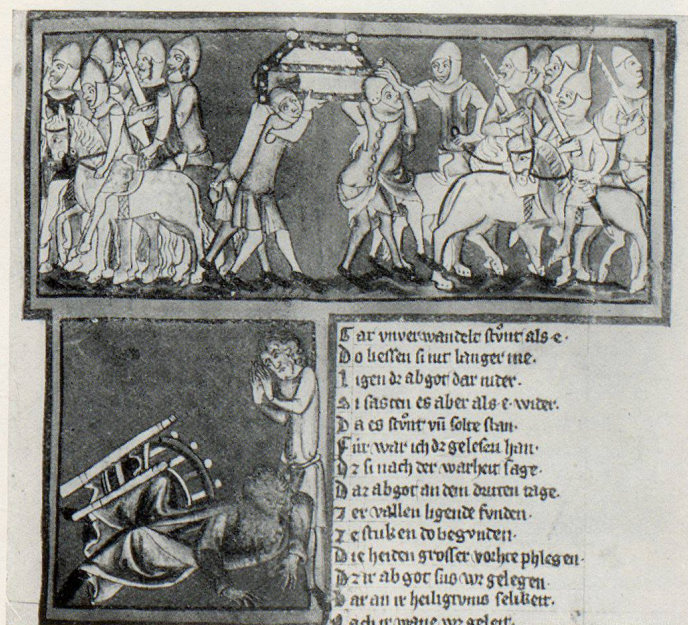 Gar vnverwandelt stůnt als·e·
Do liessen si nut langer me·
Ligen dz abgot dar nider·
Si sasten es aber als·e·wider·
Da es stůnt vn̄ solte stan·
Fúr war ich dz gelesen han·
Dz si nach der warheit sage·
Daz abgot an dem dritten tage·
Zer vallen ligende funden·
Ze stuken do begunden·
Die heiden grosser vorhte phlegen·
Dz ir abgot sus wz gelegen·
Dar an ir heiligtvms selikeit·
Nach ir wane wz geleit·